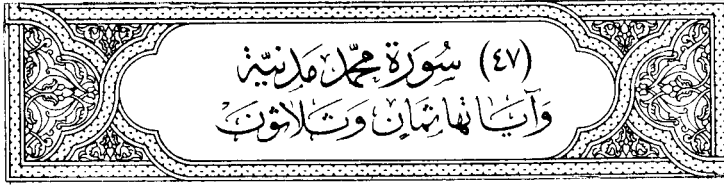 (٤٧) سُورَة مُحَمَّد مَدَنيَّة
وَآيَاتُهَا ثَمَانٍ وَثَلَاثُونَ